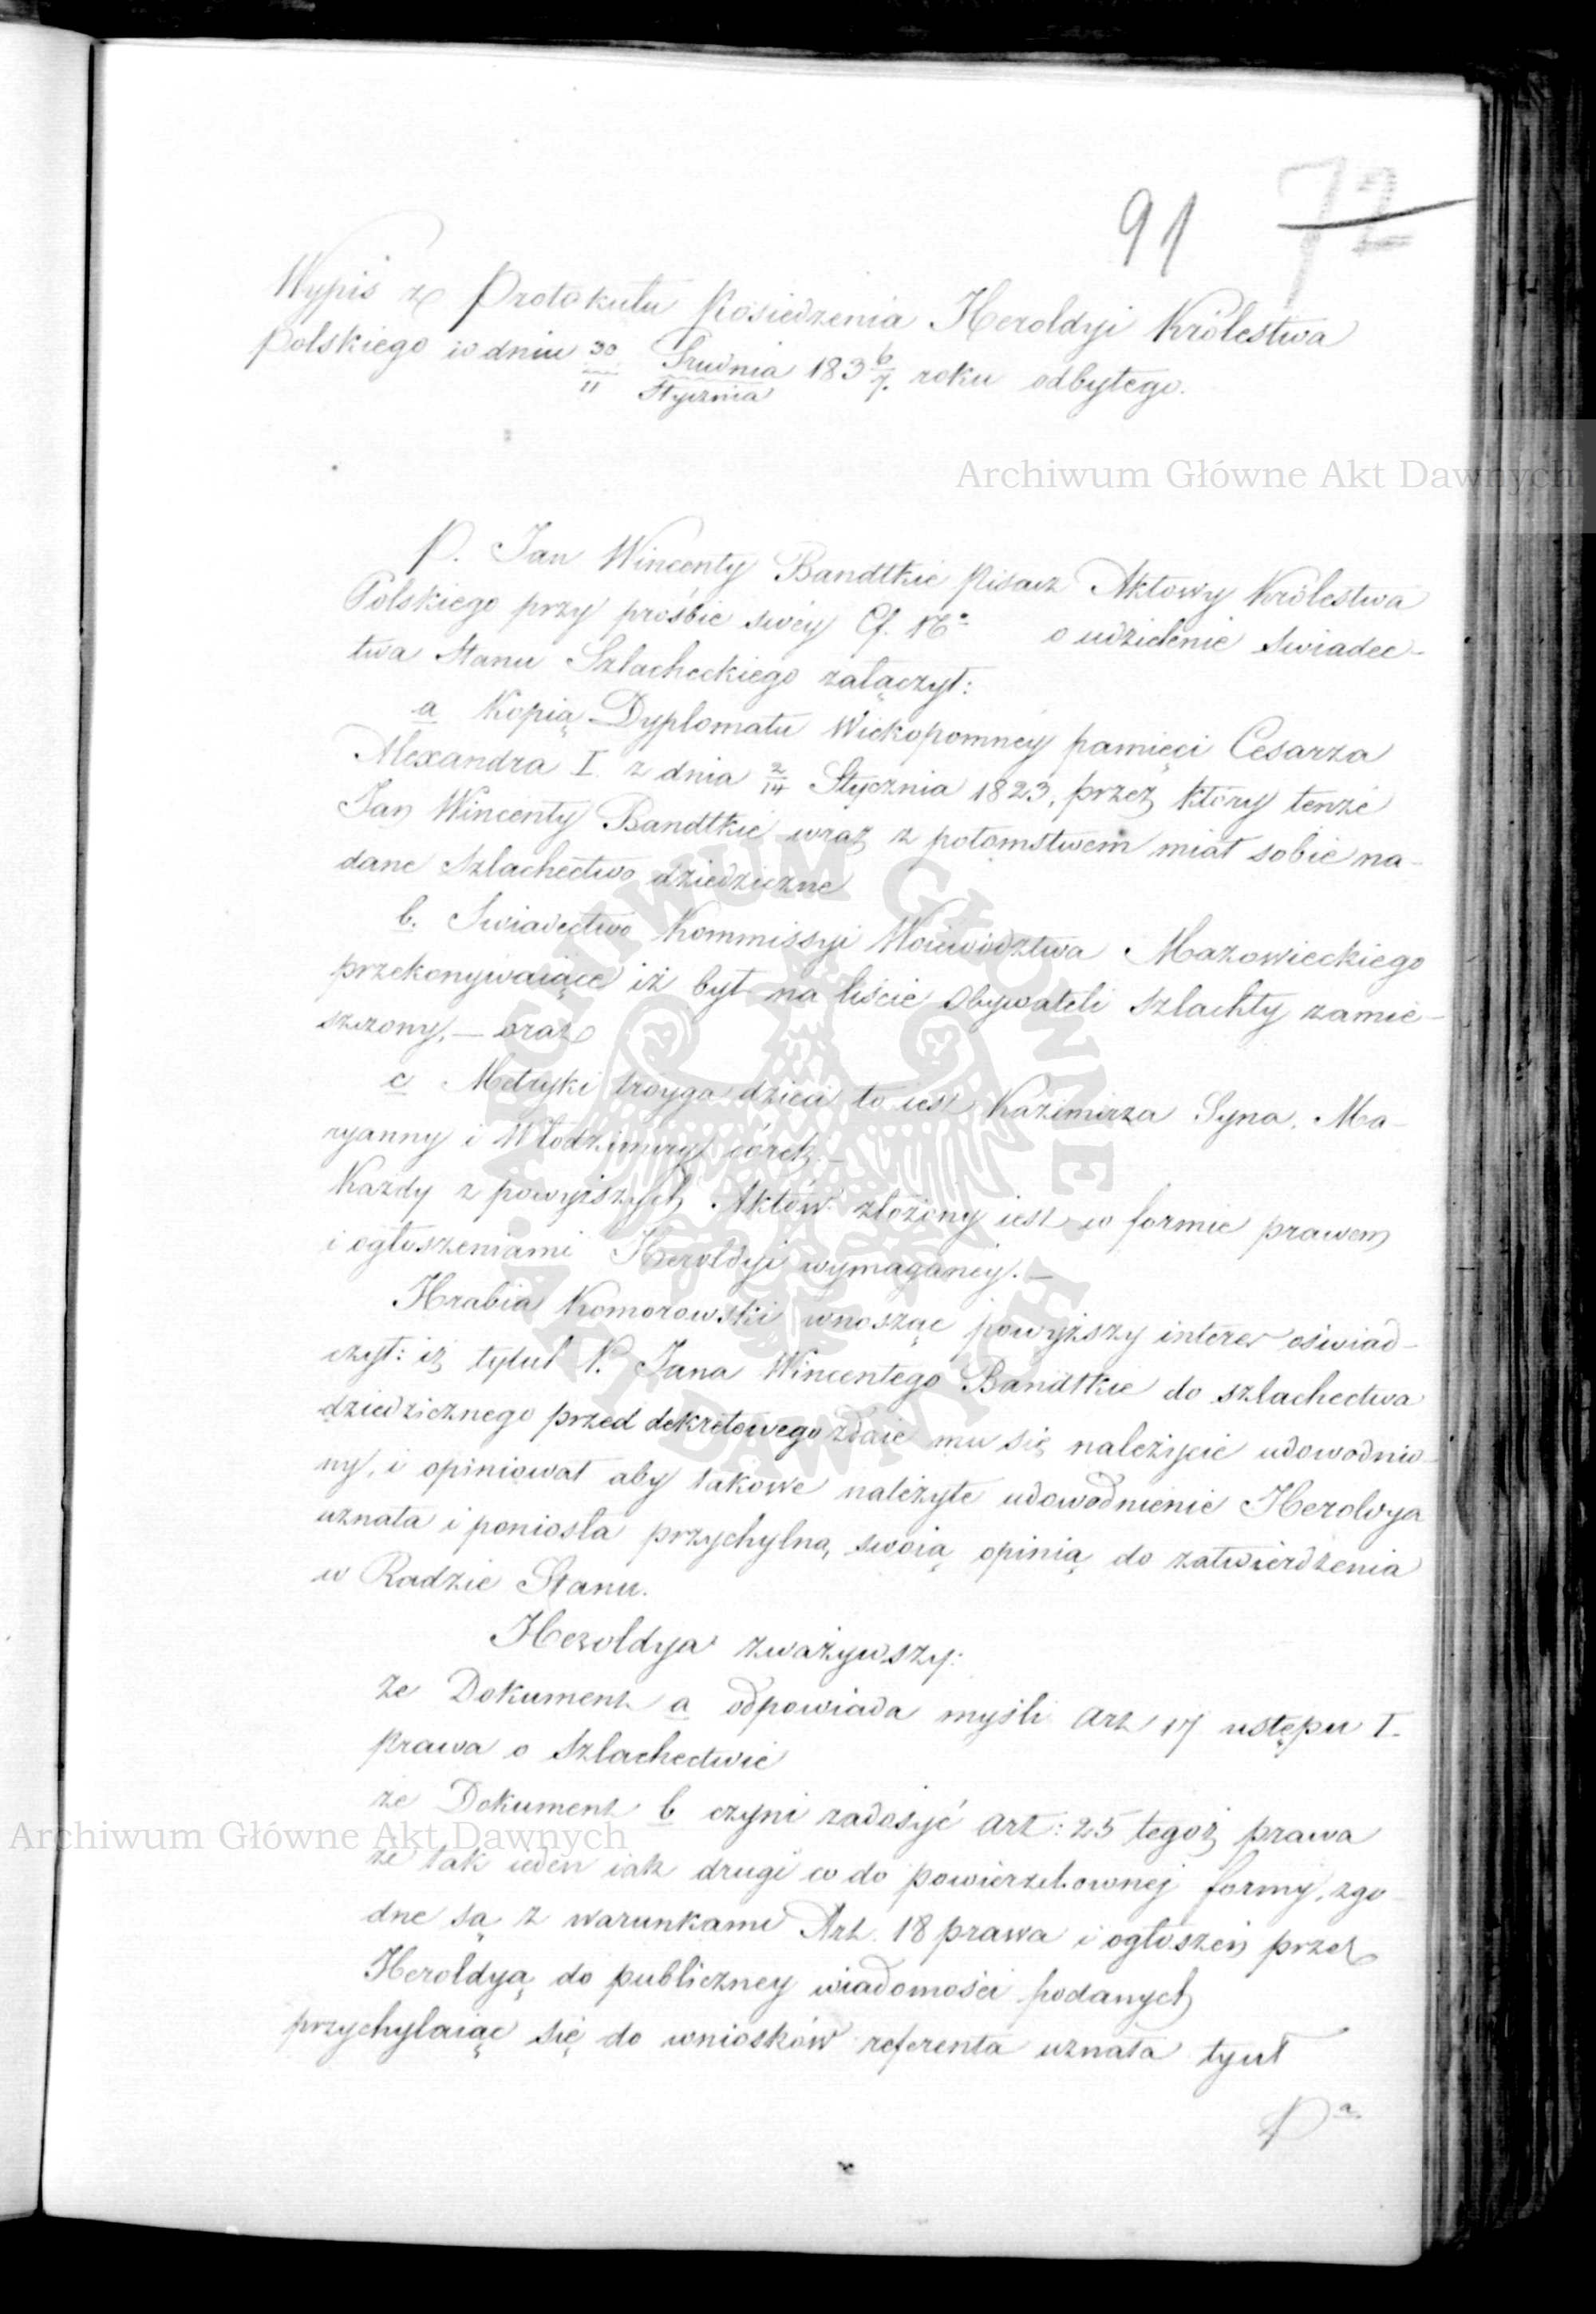 91 72
Wypis z Protokułu Posiedzenia Heroldyi Królestwa
Polskiego w dniu 30/11 Grudnia/Stycznia 183 6/7 roku odbytego.
Archiwum Główne Akt Dawnych
P. Jan Wincenty Bandtkie Pisarz Aktowy Królestwa
Polskiego przy prośbie swéy Cf. No o udzielenie swiadec-
twa Stanu Szlacheckiego załączył:
a Kopią Dyplomatu Wiekopomnéy pamięci Cesarza
Alexandra I. z dnia 2/14 Stycznia 1823, przez który tenże
Jan Wincenty Bandtkie wraz z potomstwem miał sobie na-
dane Szlachectwo dziedziczne
b. Swiadectwo Kommissyi Woiewództwa Mazowieckiego
przekonywaiące iż był na liście Obywateli szlachty zamie-
szczony, — oraz
c Metryki troyga dzieci to iest Kazimirza Syna, Ma-
ryanny i Włodzimiry córek. —
Każdy z powyższych Aktów złożony iest w formie prawem
i ogłoszeniami Heroldyi wymaganéy. —
Hrabia Komorowski wnosząc powyższy interes oświad-
czył: iż tytuł P. Jana Wincentego Bandtkie do szlachectwa
dziedzicznego przed dekretowego zdaie mu się należycie udowodnio-
ny, i opiniował aby takowe należyte udowodnienie Heroldya
uznała i poniosła przychylną swoią opinią do zatwierdzenia
w Radzie Stanu.
Heroldya zważywszy:
że Dokument a odpowiada myśli Art 17 ustępu I.
prawa o Szlachectwie
że Dokument b czyni zadosyć Art: 25 tegoż prawa
Archiwum Główne Akt Dawnych
że tak ieden iak drugi co do powierzchownej formy, zgo-
dne są z warunkami Art. 18 prawa i ogłoszeń przez
Heroldyą do publiczney wiadomości podanych
przychylaiąc się do wniosków referenta uznała tyuł
Pa
ARCHIWUM GŁÓWNE AKT DAWNYCH